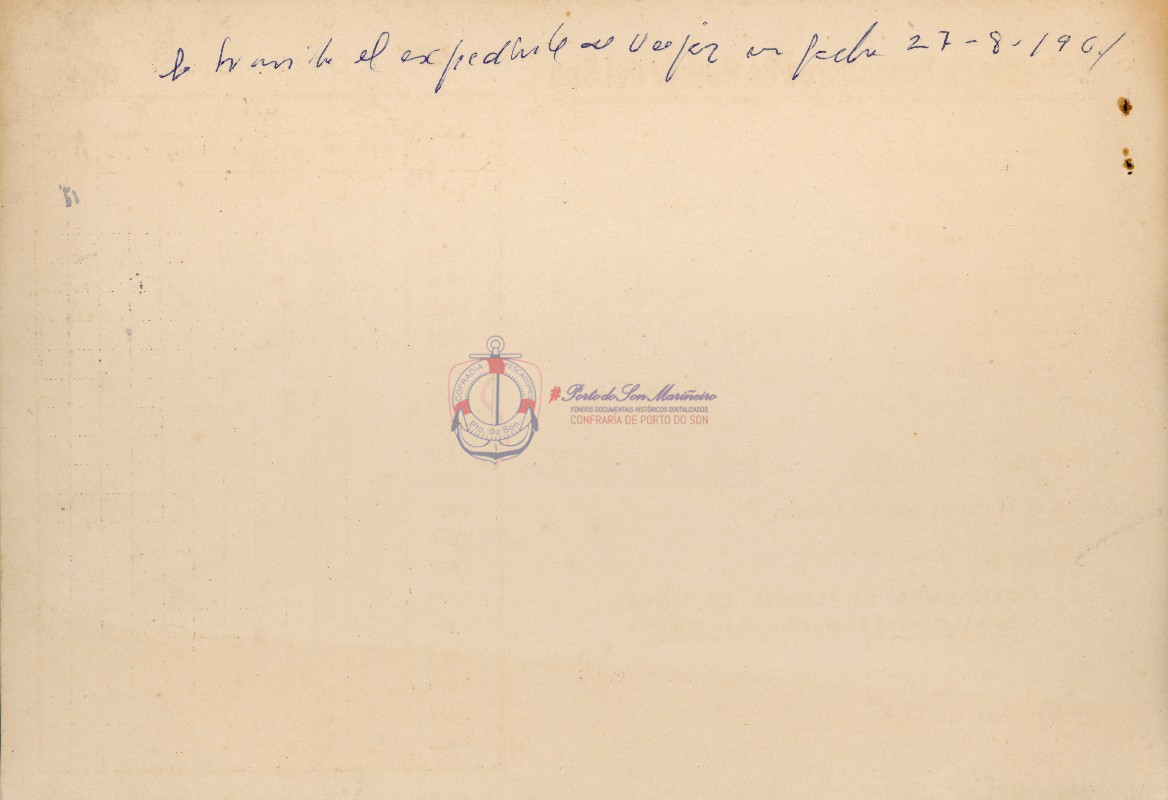 Se tramito el expediente de Vejez en fecha 27-8-1961
COFRADIA PESCADORES
Pto. do Son
#Porto do Son Mariñeiro
FONDOS DOCUMENTAIS HISTÓRICOS DIXITALIZADOS
CONFRARÍA DE PORTO DO SON